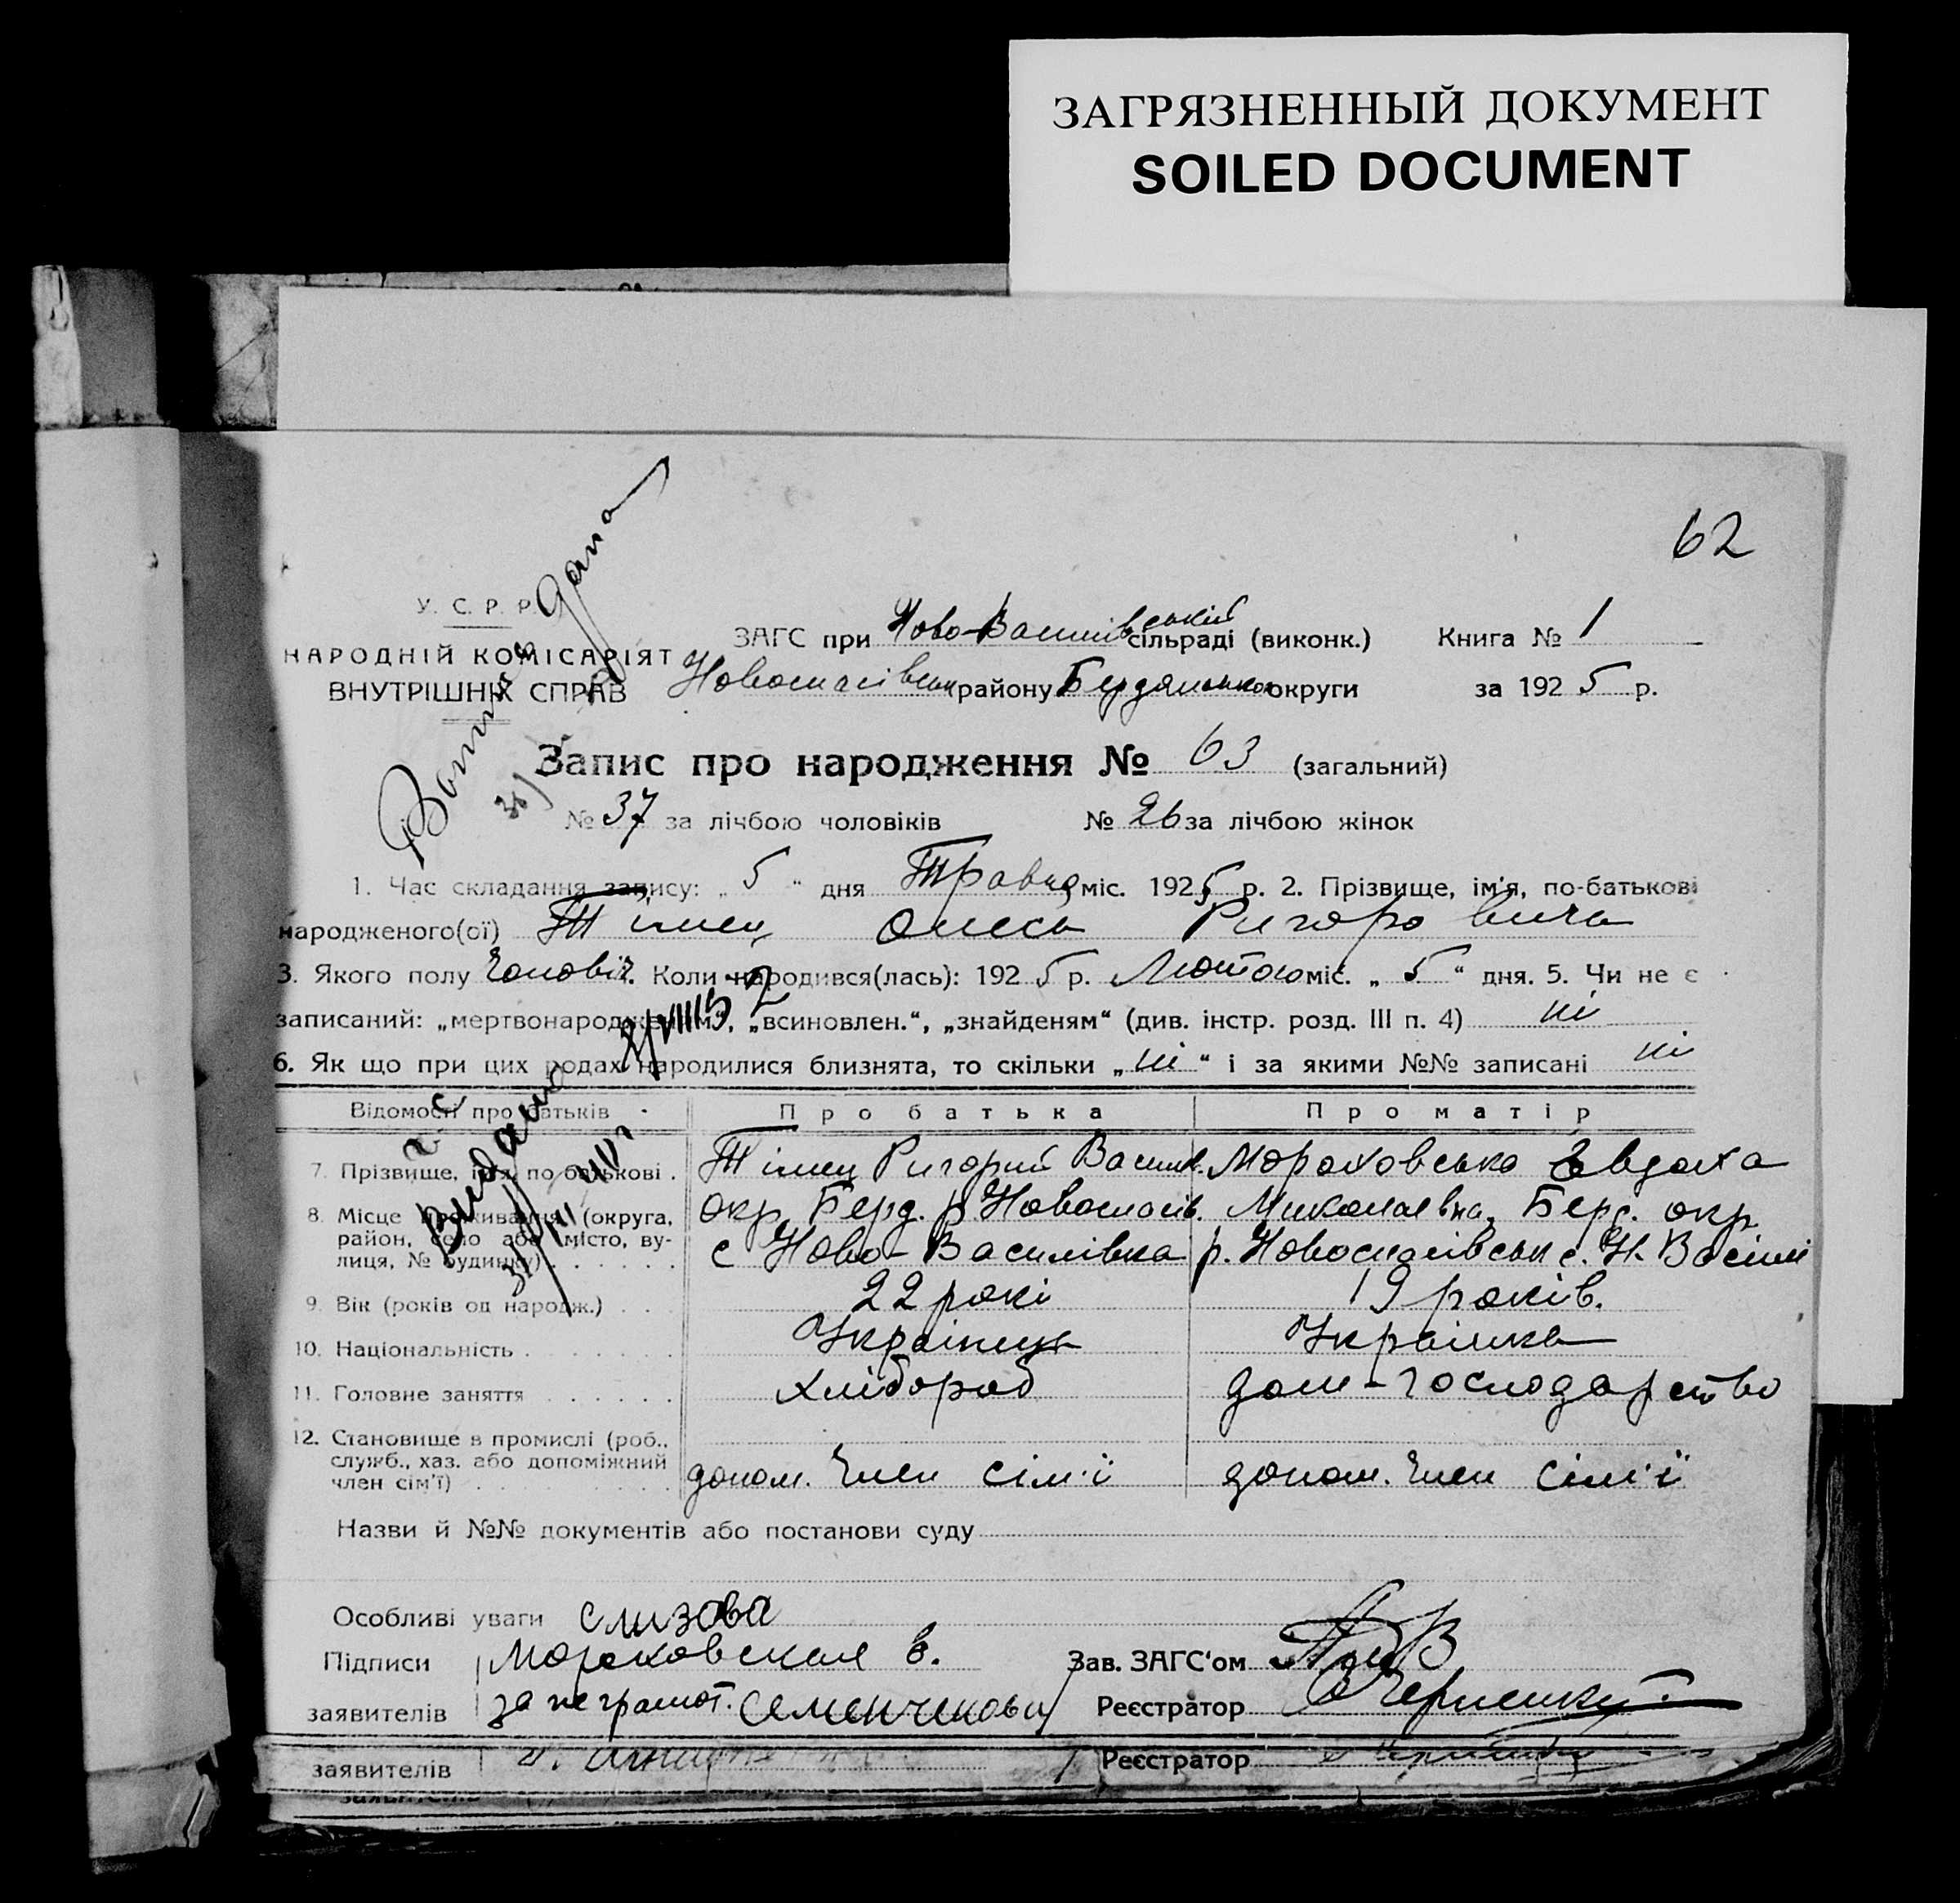 ЗАГРЯЗНЕННЫЙ ДОКУМЕНТ
SOILED DOCUMENT
62
У. С. Р. Р.
НАРОДНІЙ КОМІСАРІЯТ
ВНУТРІШНІХ СПРАВ
ЗАГС при Ново-Василівський сільраді (виконк.) Книга № 1
Новоспасівськ району Бердянської округи за 1925 р.
Запис про народження № 63 (загальний)
№ 37 за лічбою чоловіків № 26 за лічбою жінок
1. Час складання запису: „5“ дня Травня міс. 1925 р. 2. Прізвище, ім'я, по-батькові
народженого(ої) Олесь Ригоровичь
3. Якого полу Чоловіч. Коли народився(лась): 1925 р. Лютого міс. „5“ дня. 5. Чи не є
записаний: „мертвонародженим“, „всиновлен.“, „знайденям“ (див. інстр. розд. III п. 4) ні
6. Як що при цих родах народилися близнята, то скільки „ні“ і за якими №№ записані ні
Відомості про батьків Про батька Про матір
7. Прізвище, ім'я, по-батькові . Ригорий Васил. Мораховська Евдоха
8. Місце проживання (округа, окр. Берд. р. Новоспасів. Миколаевна, Берд. окр
район, село або місто, ву- с Ново-Василівка р. Новоспасівськ с. Н. Васили
лиця, № будинку)
9. Вік (років од народж.) 22 рокі 19 років.
10. Національність Українець Українка
11. Головне заняття хлібороб дом-господарство
12. Становище в промислі (роб.,
служб., хаз. або допоміжний допом. Член сім'ї допом. Член сім'ї
член сім'ї)
Назви й №№ документів або постанови суду
Особливі уваги
Підписи Мораховская Е. Зав. ЗАГС'ом
заявителів за неграмот. Семенченкова Реєстратор
заявителів Реєстратор
Видано